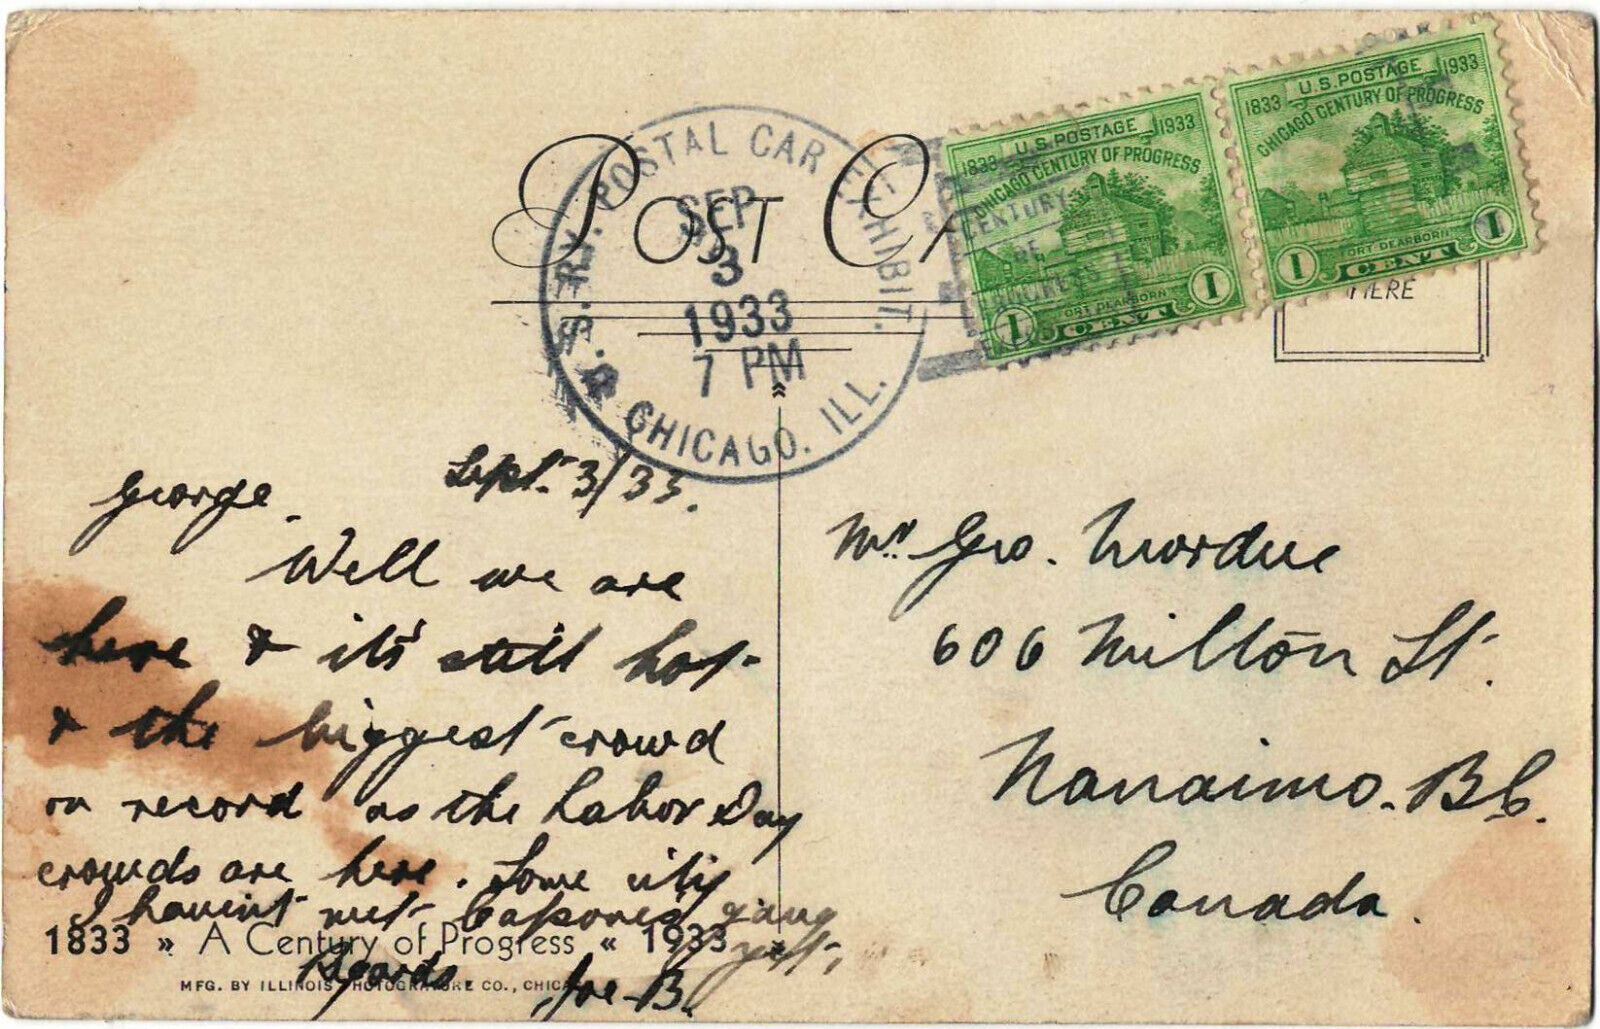 POST CA
HERE
U.S. RY. POSTAL CAR EXHIBIT.
SEP
3
1933
7 PM
CHICAGO, ILL.
CENTURY
OF
PROGRESS
U.S. POSTAGE
1833 1933
CHICAGO CENTURY OF PROGRESS
FORT DEARBORN
1 CENT 1
U.S. POSTAGE
1833 1933
CHICAGO CENTURY OF PROGRESS
FORT DEARBORN
1 CENT 1
Sept. 3/33.
George.
Well we are
here & it's still hot
& the biggest crowd
on record as the Labor Day
crowds are here. Some city
I havent met Capones gang
yet,
Regards Joe B.
Mr. Geo. Mordue
606 Milton St.
Nanaimo. B.C.
Canada.
1833 » A Century of Progress « 1933
MFG. BY ILLINOIS PHOTOGRAVURE CO., CHIC